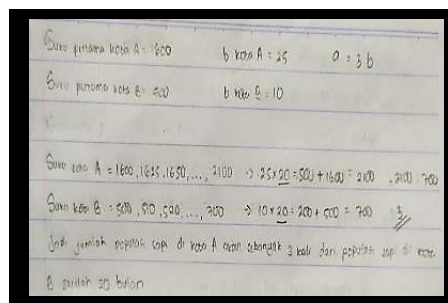 Suku pertama kota A = 1600 b kota A = 25 a = 3b
Suku pertama kota B = 500 b kota B = 10
Suku kota A = 1600, 1625, 1650, ..., 2100 → 25 x 20 = 500 + 1600 = 2100 2100 : 700
Suku kota B = 500, 510, 520, ..., 700 → 10 x 20 = 200 + 500 = 700 = 3
Jadi jumlah populasi sapi di kota A akan sebanyak 3 kali dari populasi sapi di kota
B setelah 20 bulan